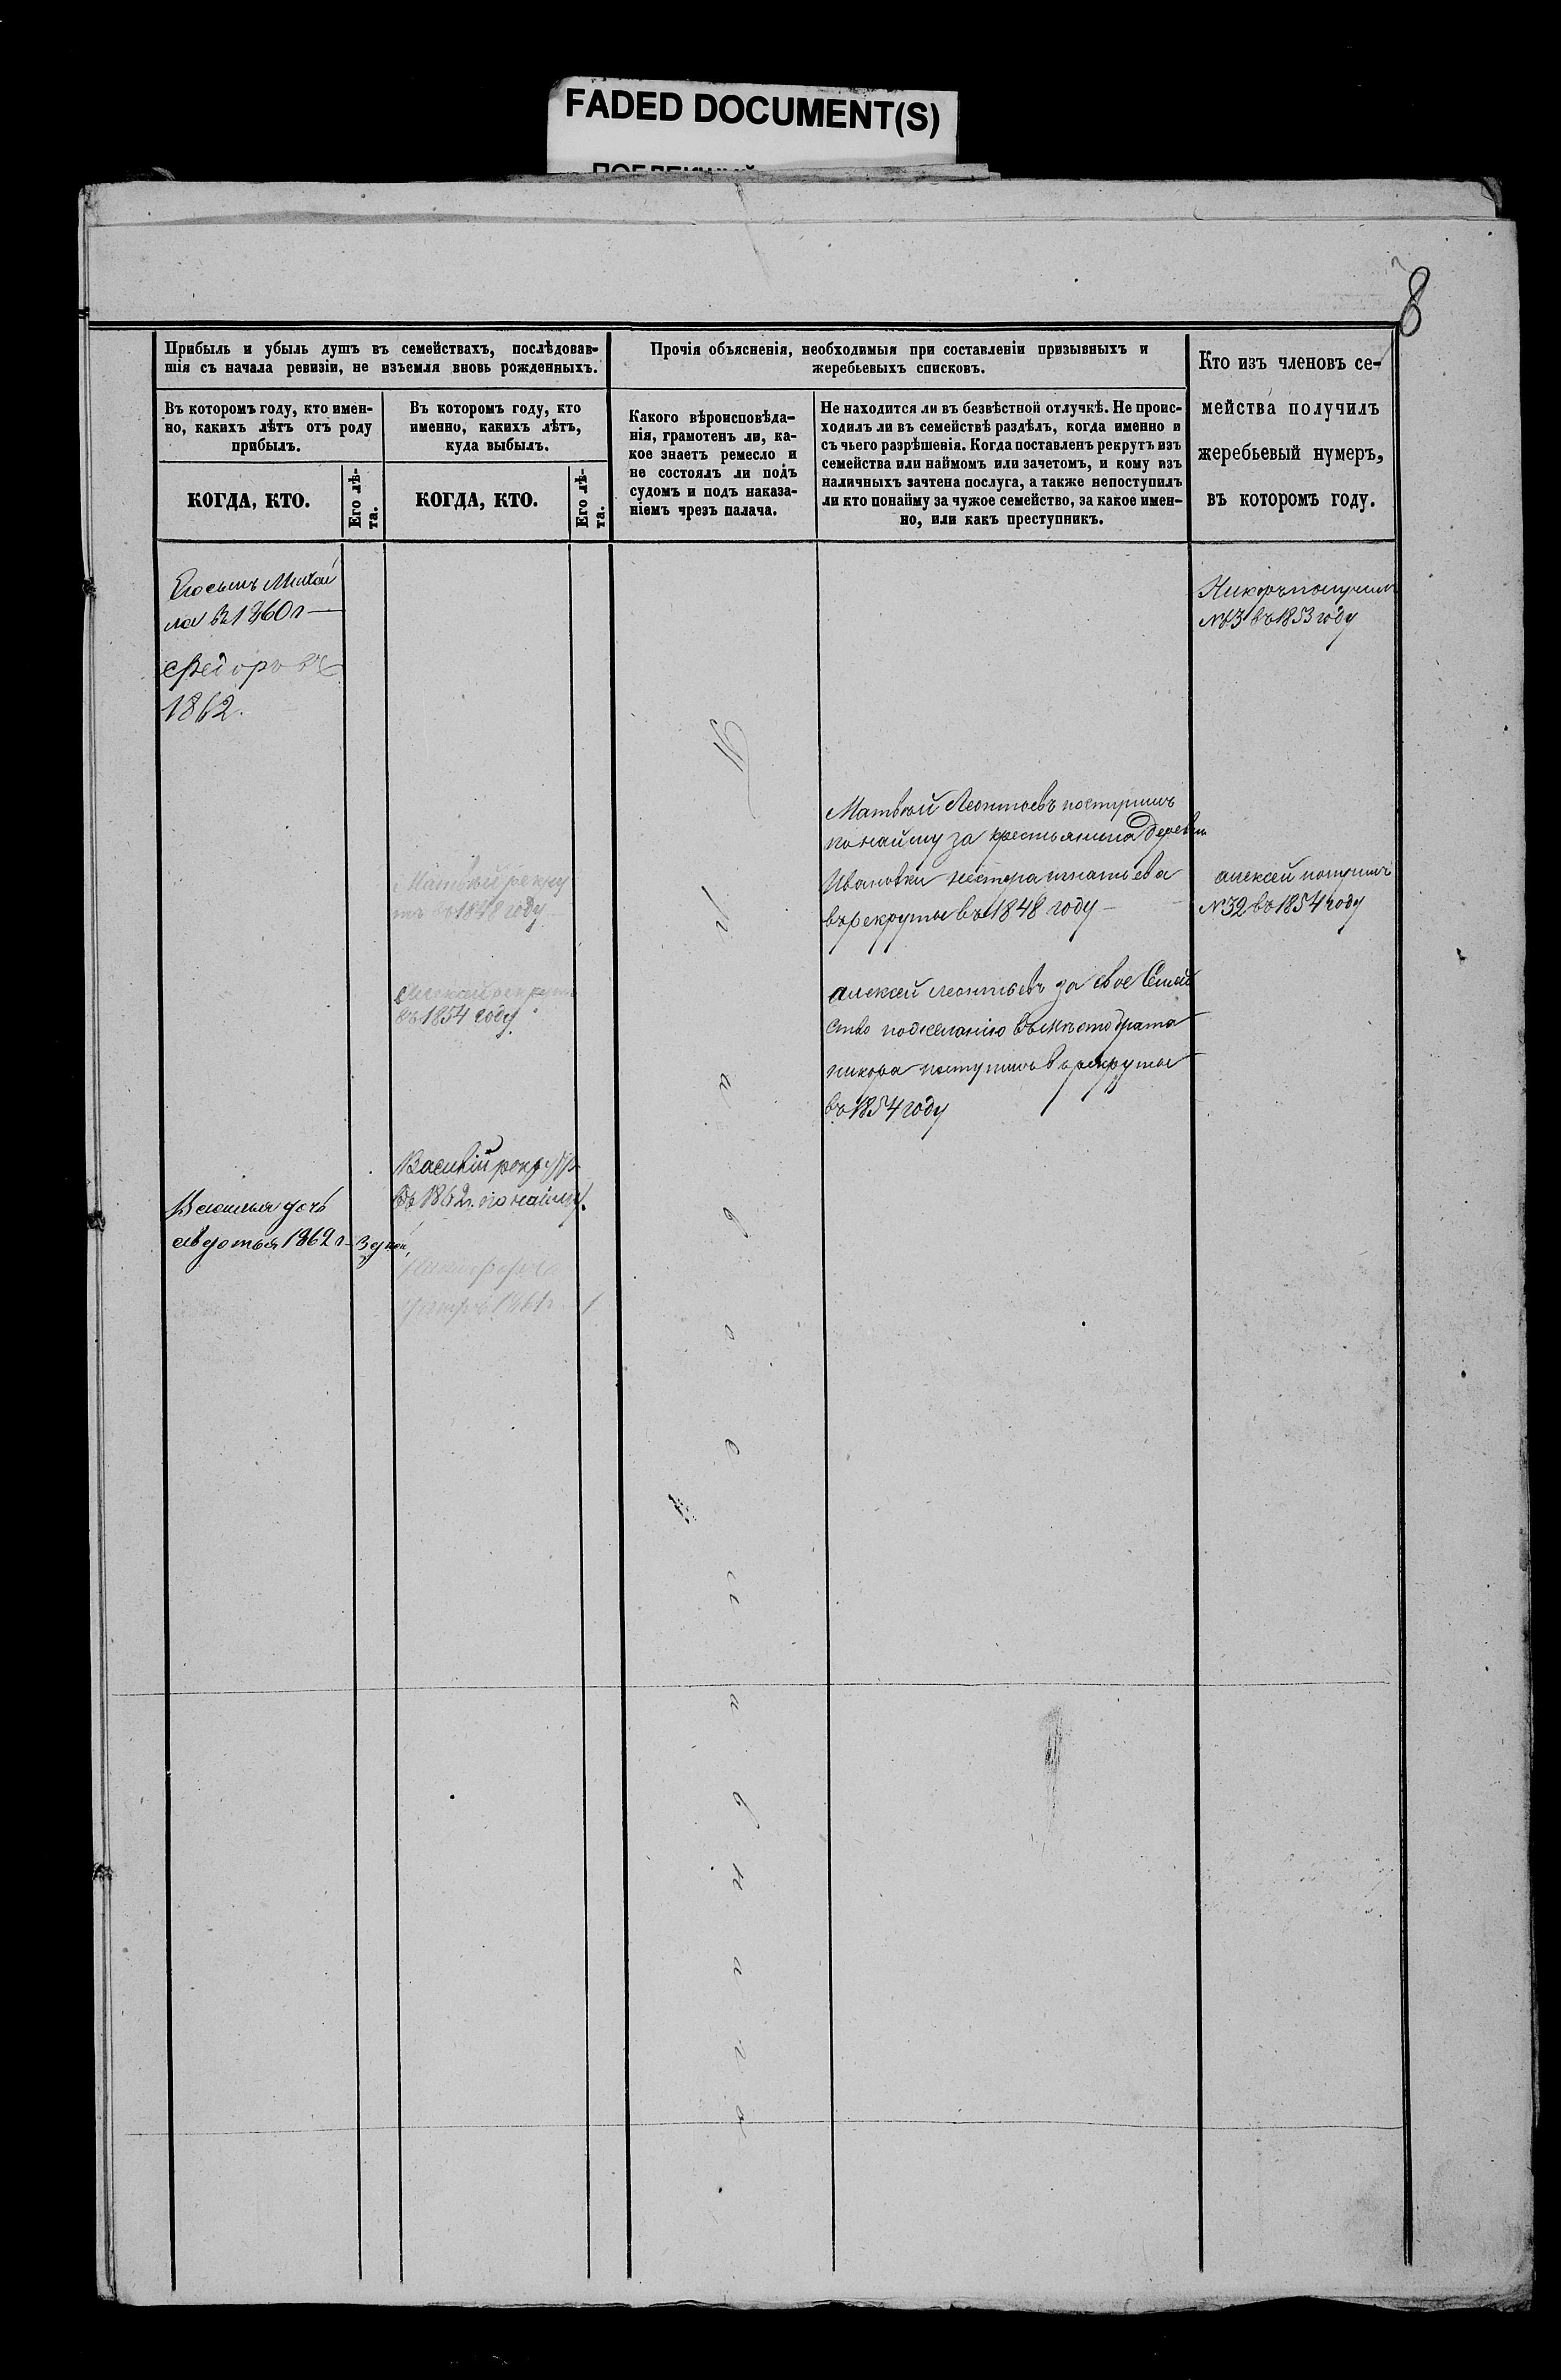 FADED DOCUMENT(S)
8
Прибыль и убыль душъ въ семействахъ, послѣдовав-
шія съ начала ревизіи, не изъемля вновь рожденныхъ.
Въ которомъ году, кто имен-
но, какихъ лѣтъ отъ роду
прибылъ.
КОГДА, КТО.
Его лѣ-
та.
Въ которомъ году, кто
именно, какихъ лѣтъ,
куда выбылъ.
КОГДА, КТО.
Его лѣ-
та.
Прочія объясненія, необходимыя при составленіи призывныхъ и
жеребьевыхъ списковъ.
Какого вѣроисповѣда-
нія, грамотенъ ли, ка-
кое знаетъ ремесло и
не состоялъ ли подъ
судомъ и подъ наказа-
ніемъ чрезъ палача.
Не находится ли въ безвѣстной отлучкѣ. Не проис-
ходилъ ли въ семействѣ раздѣлъ, когда именно и
съ чьего разрѣшенія. Когда поставленъ рекрутъ изъ
семейства или наймомъ или зачетомъ, и кому изъ
наличныхъ зачтена послуга, а также непоступилъ
ли кто понайму за чужое семейство, за какое имен-
но, или какъ преступникъ.
Кто изъ членовъ се-
мейства получилъ
жеребьевый нумеръ,
въ которомъ году.
Его сынъ Михаи
ла въ 1860 г
Федоръ въ
1862.
дочь
авдотья 1862 г
Матвѣй рекру
тъ въ 1848 году
Алексей рекрутъ
въ 1854 году
Василій рекрутъ
въ 1862 г. по найму.
1
Матвѣй Леонтьевъ поступилъ
понайму за крестьянина Деревни
Ивановки нестера игнатьева
въ рекруты въ 1848 году
алексей леонтьевъ за свое Семей
ство пожеланію вместо брата
никора поступилъ в рекруты
въ 1854 году
Никоръ получилъ
№ 3 въ 1853 году
алексей получилъ
№ 32 въ 1854 году